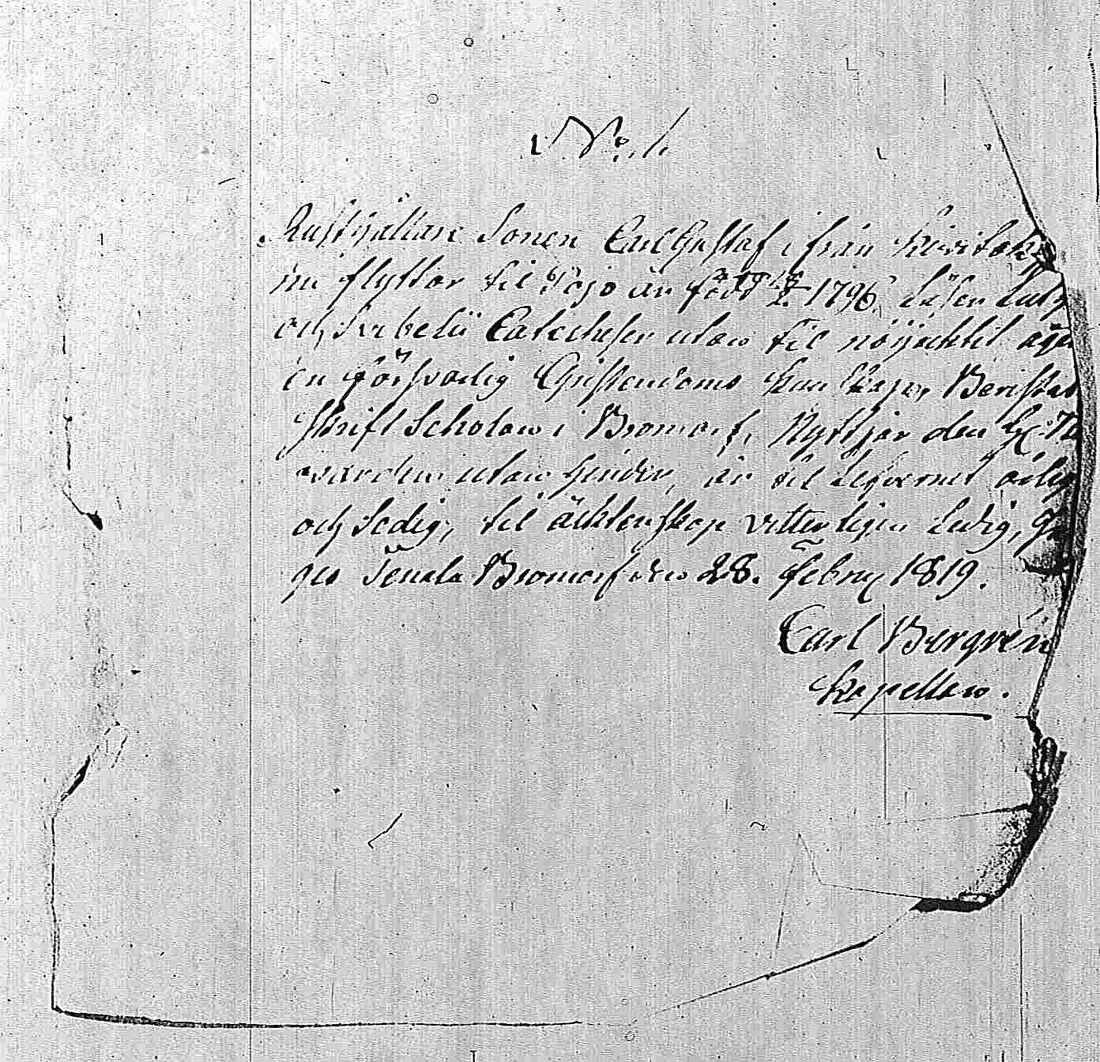 No. 1.
Rusthållare Sonen Carl Gustaf ifrån
nu flyttar til Pojo är född 1796, Läser Luth
och Svebelii Catecheser utan til nöjachtel. äger
en försvarlig Christendoms kunskap,
skrift Scholan i Bromarf, Nyttjar den H. H. Na
warden utan hinder, är til Lefvernet ärlig
och Sedig, til äktenskap vitterligen Ledig,
ges Tenala Bromarf den 28. Febry 1819.
Carl Bergrén
Kapellan.